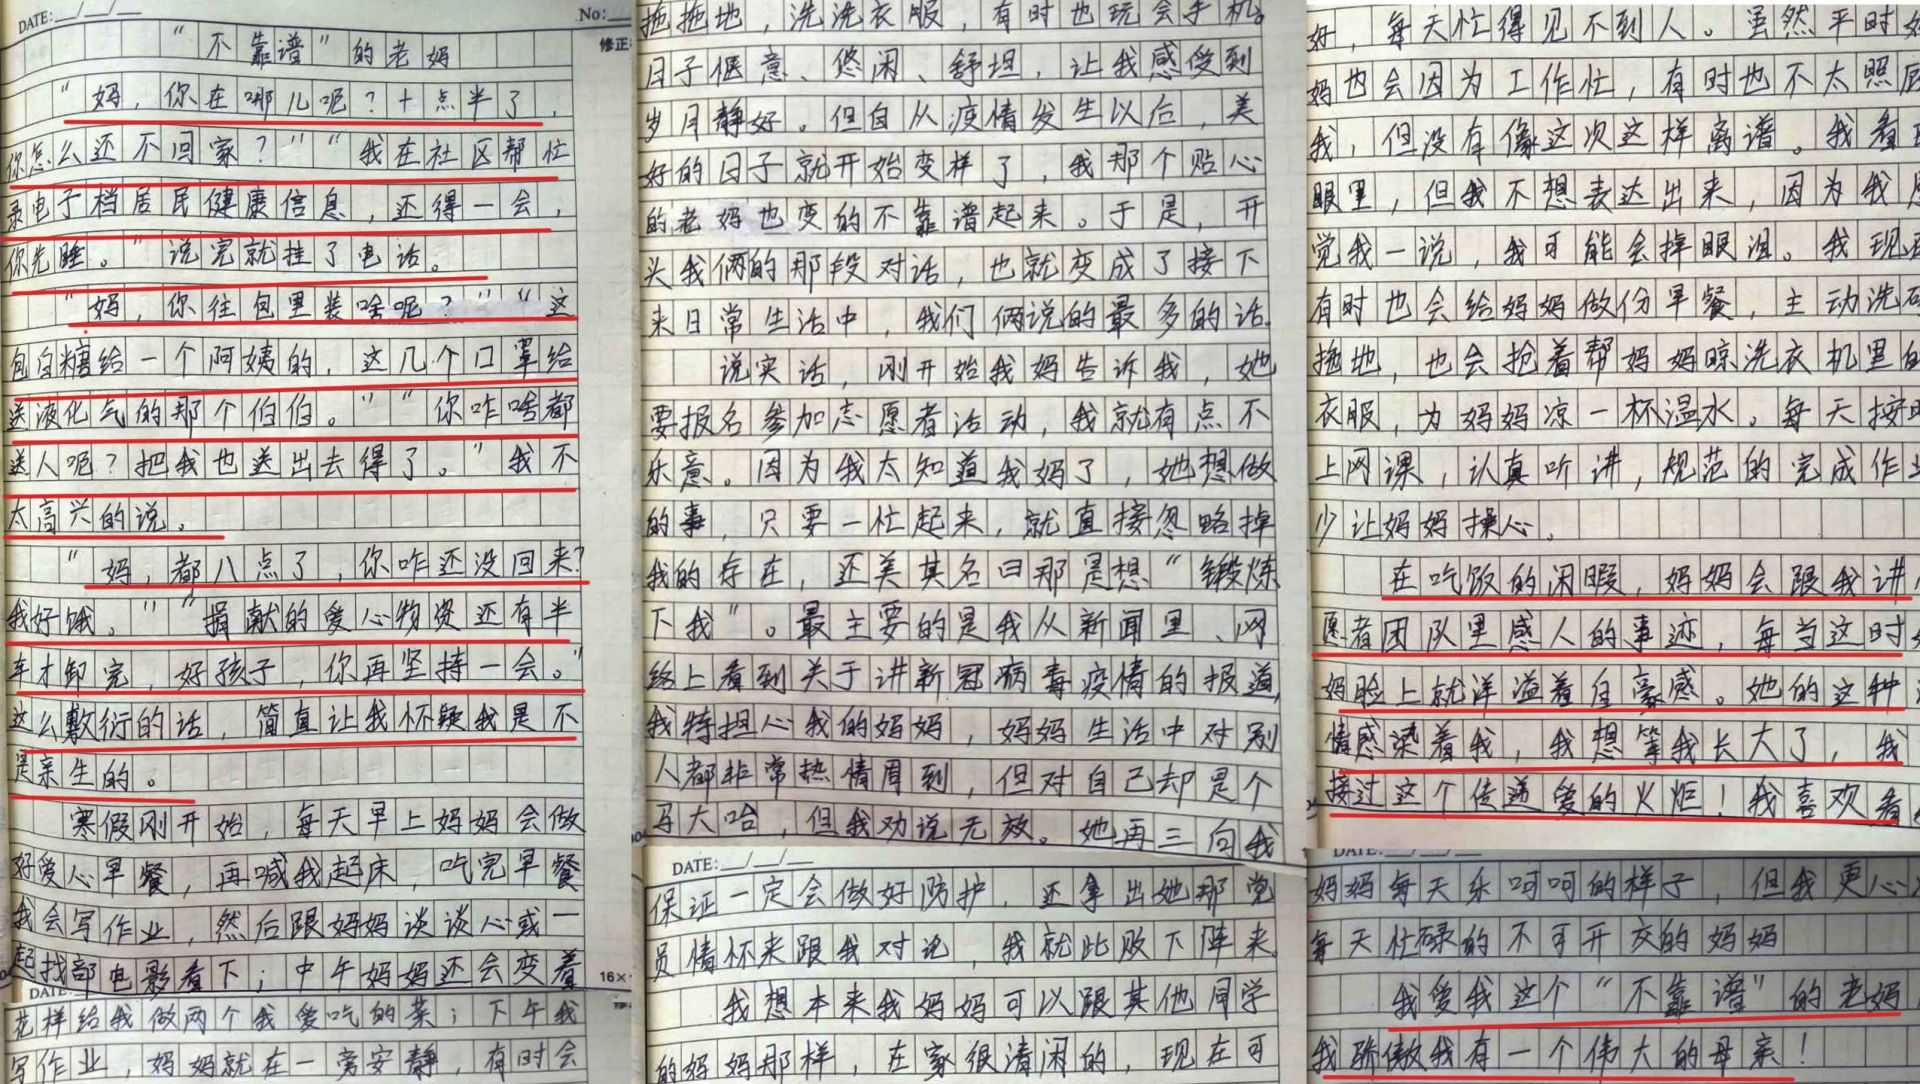 DATE:
No:
修正
"不靠谱"的老妈
"妈,你在哪儿呢?十点半了,
你怎么还不回家?""我在社区帮忙
录电子档居民健康信息,还得一会,
你先睡。"说完就挂了电话。
"妈,你往包里装啥呢?""这
包白糖给一个阿姨的,这几个口罩给
送液化气的那个伯伯。""你咋啥都
送人呢?把我也送出去得了。"我不
太高兴的说。
"妈,都八点了,你咋还没回来?
我好饿。""捐献的爱心物资还有半
车才卸完,好孩子,你再坚持一会。"
这么敷衍的话,简直让我怀疑我是不
是亲生的。
寒假刚开始,每天早上妈妈会做
好爱心早餐,再喊我起床,吃完早餐
我会写作业,然后跟妈妈谈谈心或一
起找部电影看下;中午妈妈还会变着
16×
DATE:
花样给我做两个我爱吃的菜;下午我
写作业,妈妈就在一旁安静,有时会
拖拖地,洗洗衣服,有时也玩会手机。
日子惬意、悠闲、舒坦,让我感受到
岁月静好。但自从疫情发生以后,美
好的日子就开始变样了,我那个贴心
的老妈也变的不靠谱起来。于是,开
头我俩的那段对话,也就变成了接下
来日常生活中,我们俩说的最多的话。
说实话,刚开始我妈告诉我,她
要报名参加志愿者活动,我就有点不
乐意。因为我太知道我妈了,她想做
的事,只要一忙起来,就直接忽略掉
我的存在,还美其名曰那是想"锻炼
下我"。最主要的是我从新闻里、网
络上看到关于讲新冠病毒疫情的报道,
我特担心我的妈妈,妈妈生活中对别
人都非常热情周到,但对自己却是个
马大哈,但我劝说无效。她再三向我
DATE:
保证一定会做好防护,还拿出她那党
员情怀来跟我对论,我就此败下阵来。
我想本来我妈妈可以跟其他同学
的妈妈那样,在家很清闲的,现在可
好,每天忙得见不到人。虽然平时妈
妈也会因为工作忙,有时也不太照顾
我,但没有像这次这样离谱。我看在
眼里,但我不想表达出来,因为我
觉我一说,我可能会掉眼泪。我现在
有时也会给妈妈做份早餐,主动洗碗
拖地,也会抢着帮妈妈晾洗衣机里的
衣服,为妈妈凉一杯温水。每天按时
上网课,认真听讲,规范的完成作业
少让妈妈操心。
在吃饭的闲暇,妈妈会跟我讲
愿者团队里感人的事迹,每当这时
妈脸上就洋溢着自豪感。她的这种
情感染着我,我想等我长大了,我
接过这个传递爱的火炬!我喜欢看
DATE:
妈妈每天乐呵呵的样子,但我更心
每天忙碌的不可开交的妈妈
我爱我这个"不靠谱"的老妈
我骄傲我有一个伟大的母亲!